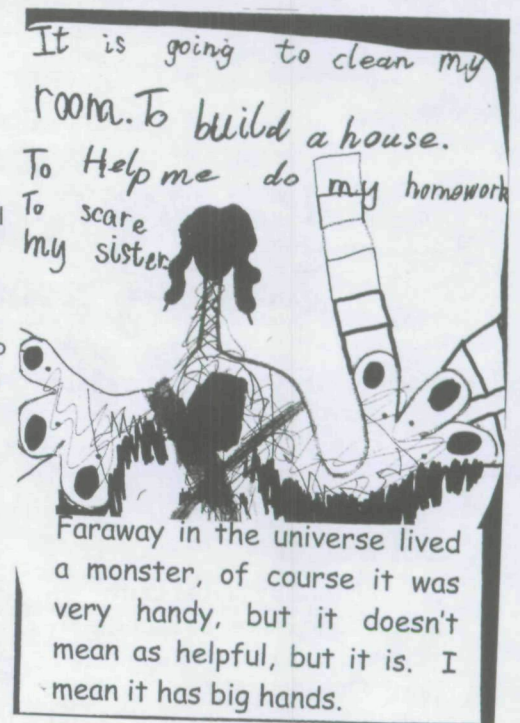 It is going to clean my
room. To build a house.
To Help me do my homework
To scare
my sister.
Faraway in the universe lived
a monster, of course it was
very handy, but it doesn't
mean as helpful, but it is. I
mean it has big hands.